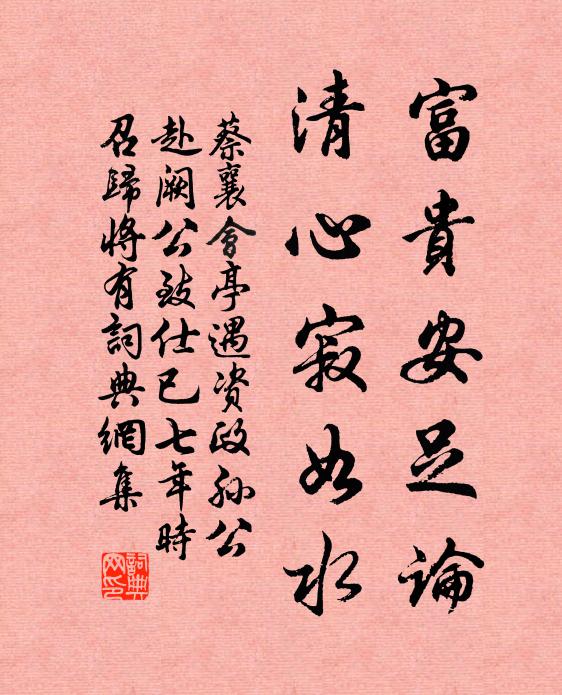 富貴安足論
清心寂如水
蔡襄會亭遇资政孙公
赴阙公致仕已七年時
召歸將有詞典網集
詞典网印